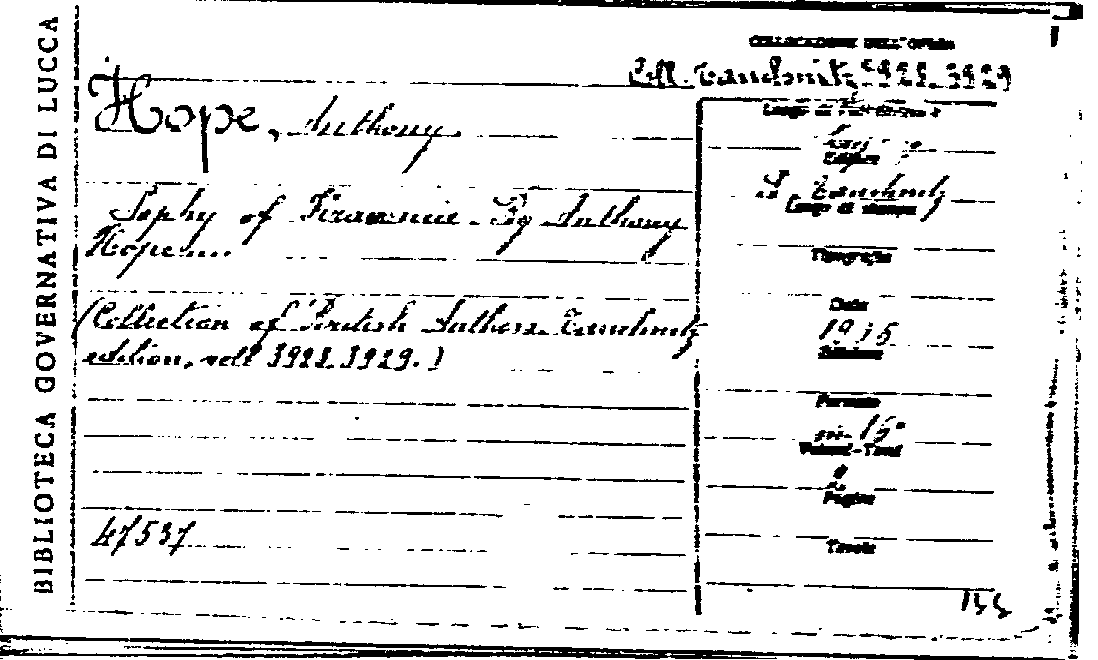 BIBLIOTECA GOVERNATIVA DI LUCCA
COLLOCAZIONE DELL'OPERA
Coll. Tauchnitz 3928-3929
Hope, Anthony
Sophy of Kravonia. By Anthony
Hope...
(Collection of British Authors. Tauchnitz
edition, voll 3928-3929.)
47537
Editore
Tauchnitz
Luogo di stampa
Tipografia
Data
Edizione
Formato
in-16°
Volumi-Tomi
Pagine
Tavole